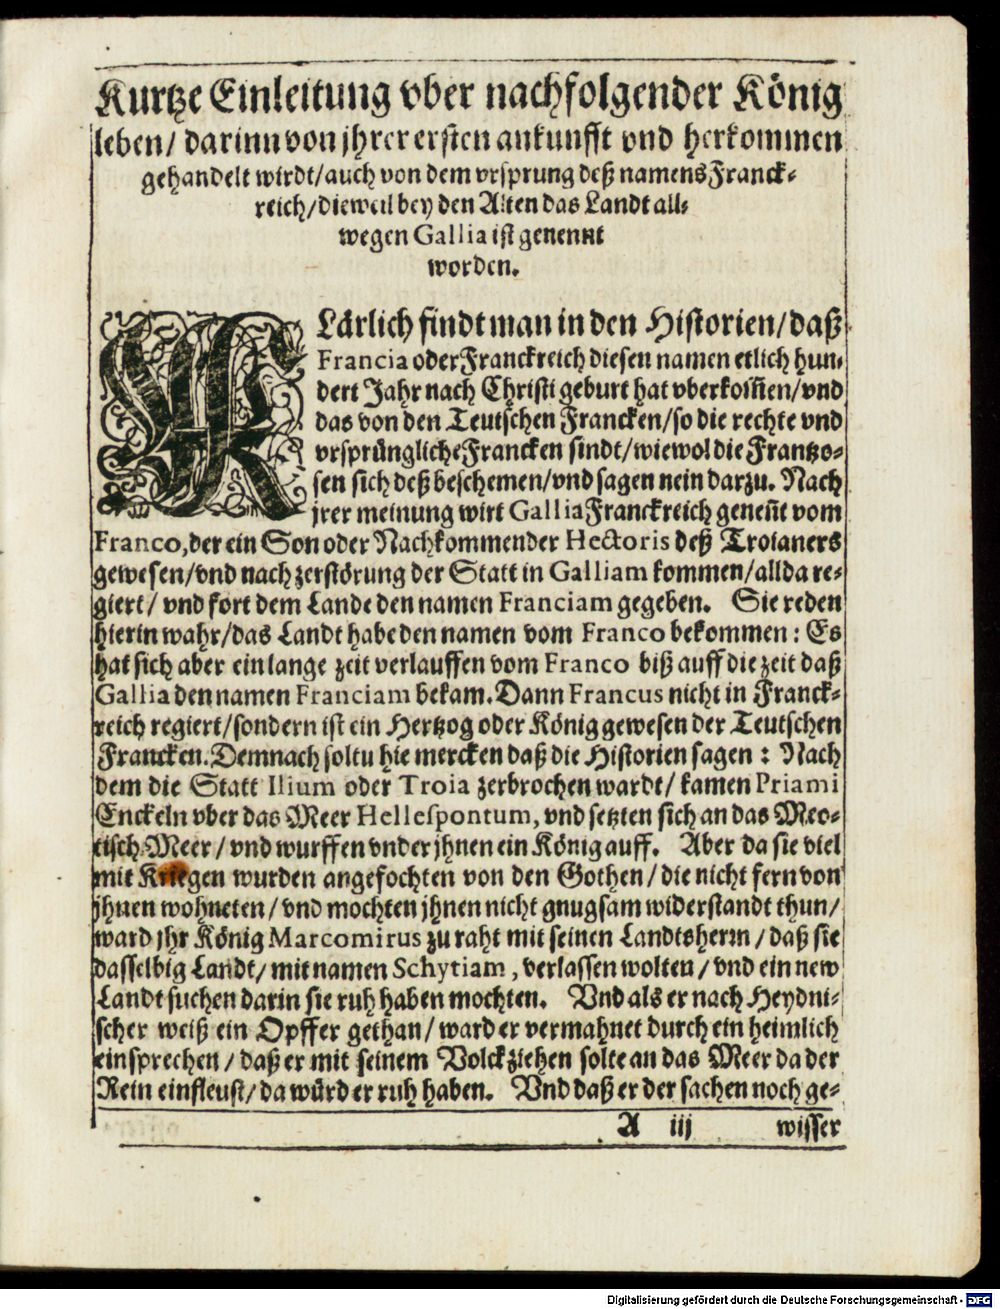 Kurtze Einleitung vber nachfolgender König
leben/ darinn von jhrer ersten ankunfft vnd herkommen
gehandelt wirdt/auch von dem vrsprung deß namens Franck-
reich/dieweil bey den Alten das Landt all-
wegen Gallia ist genennt
worden.
KLärlich findt man in den Historien/daß
Francia oder Franckreich diesen namen etlich hun-
dert Jahr nach Christi geburt hat vberkom̃en/vnd
das von den Teutschen Francken/so die rechte vnd
vrsprüngliche Francken sindt/wiewol die Frantzo-
sen sich deß beschemen/vnd sagen nein darzu. Nach
jrer meinung wirt Gallia Franckreich geneñt vom
Franco, der ein Son oder Nachkommender Hectoris deß Troianers
gewesen/vnd nach zerstörung der Statt in Galliam kommen/allda re-
giert/ vnd fort dem Lande den namen Franciam gegeben. Sie reden
hierin wahr/das Landt habe den namen vom Franco bekommen: Es
hat sich aber ein lange zeit verlauffen vom Franco biß auff die zeit daß
Gallia den namen Franciam bekam. Dann Francus nicht in Franck-
reich regiert/sondern ist ein Hertzog oder König gewesen der Teutschen
Francken. Demnach soltu hie mercken daß die Historien sagen: Nach
dem die Statt Ilium oder Troia zerbrochen wardt/ kamen Priami
Enckeln vber das Meer Hellespontum, vnd setzten sich an das Meo-
tisch Meer/vnd wurffen vnder jhnen ein König auff. Aber da sie viel
mit Kriegen wurden angefochten von den Gothen/die nicht fern von
jhnen wohneten/vnd mochten jhnen nicht gnugsam widerstandt thun/
ward jhr König Marcomirus zu raht mit seinen Landtsherrn/daß sie
dasselbig Landt/ mit namen Schytiam, verlassen wolten/vnd ein new
Landt suchen darin sie ruh haben mochten. Vnd als er nach Heydni-
scher weiß ein Opffer gethan/ward er vermahnet durch ein heimlich
einsprechen/daß er mit seinem Volck ziehen solte an das Meer da der
Rein einfleust/da würd er ruh haben. Vnd daß er der sachen noch ge-
A iij wisser
Digitalisierung gefördert durch die Deutsche Forschungsgemeinschaft - DFG